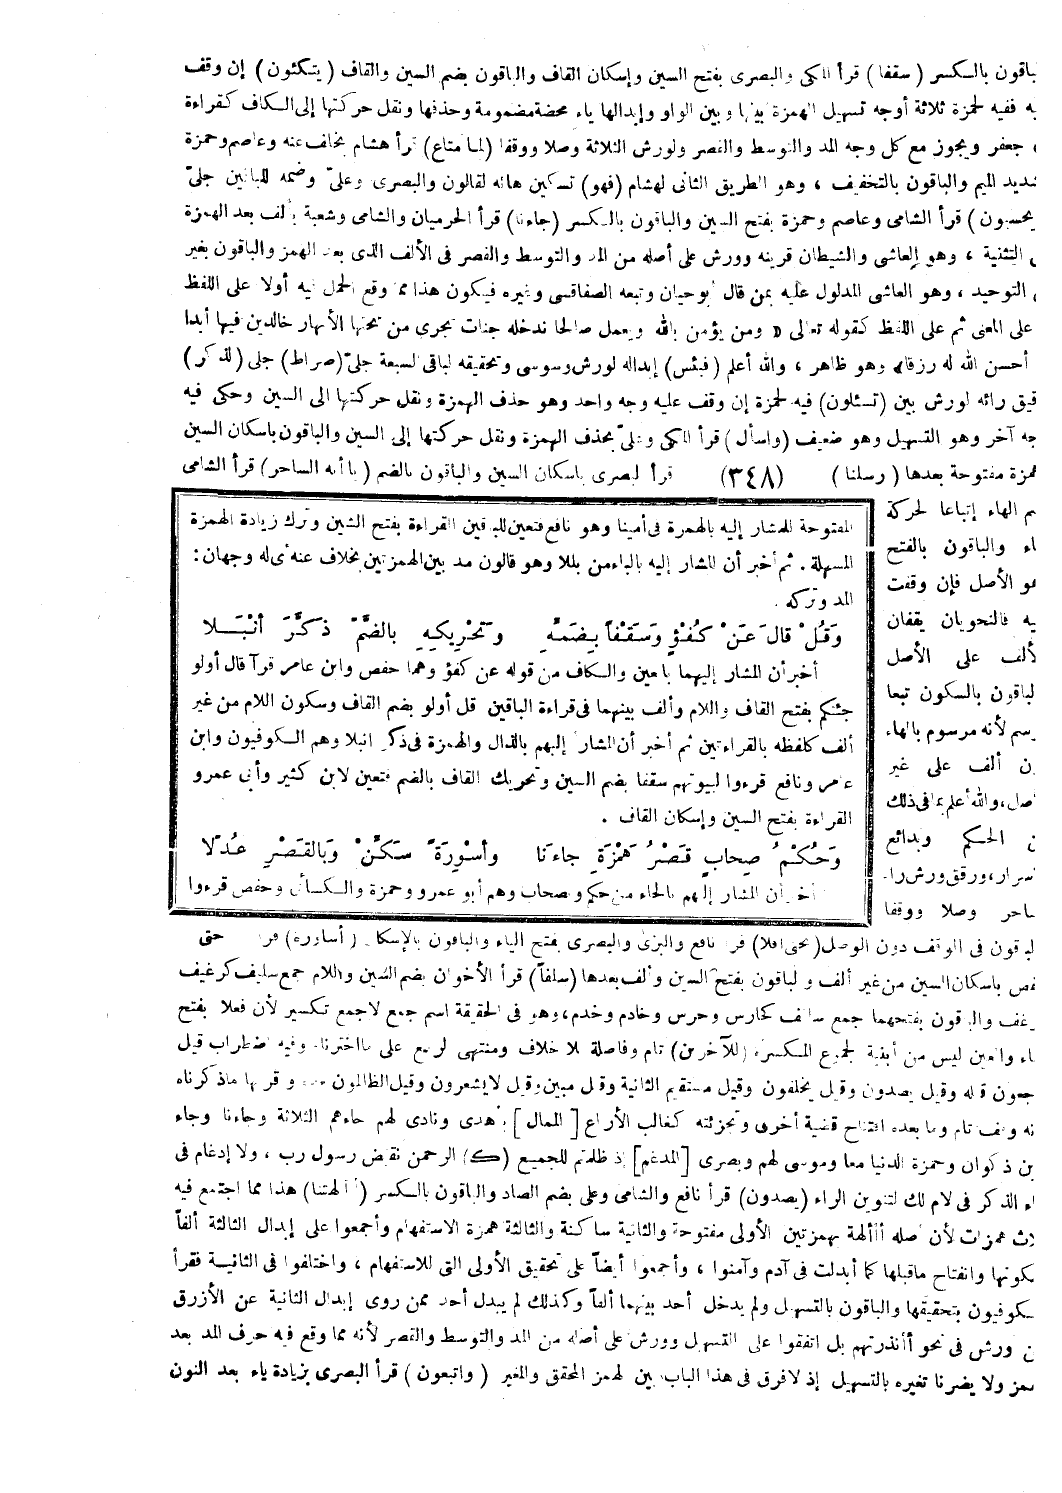 لباقون بالكسر (سقفا) قرأ المكى والبصرى بفتح السين وإسكان القاف والباقون بضم السين والقاف (يتكئون) إن وقف
يه ففيه لحمزة ثلاثة أوجه تسهيل الهمزة بينها وبين الواو وإبدالها ياء محضة مضمومة وحذفها ونقل حركتها إلى الكاف كقراءة
جعفر ويجوز مع كل وجه المد والتوسط والقصر ولورش الثلاثة وصلا ووقفا (لما متاع) قرأ هشام بخلف عنه وعاصم وحمزة
شديد الميم والباقون بالتخفيف ، وهو الطريق الثانى لهشام (فهو) تسكين هائه لقالون والبصرى وعلىّ وضمه للباقين جلىّ
يحسبون) قرأ الشامى وعاصم وحمزة بفتح السين والباقون بالكسر (جاءنا) قرأ الحرميان والشامى وشعبة بألف بعد الهمزة
التثنية ، وهو العاشى والشيطان قرينه وورش على أصله من المد والتوسط والقصر فى الألف الذى بعد الهمز والباقون بغير
التوحيد ، وهو العاشى المدلول عليه بمن قال أبو حيان وتبعه الصفاقسى وغيره فيكون هذا مما وقع الحمل فيه أولا على اللفظ
على المعنى ثم على اللفظ كقوله تعالى « ومن يؤمن بالله ويعمل صالحا ندخله جنات تجرى من تحتها الأنهار خالدين فيها أبدا
أحسن الله له رزقا» وهو ظاهر ، والله أعلم (فبئس) إبداله لورش وسوسى وتحقيقه لباقى السبعة جلىّ (صراط) جلى (لذكر)
قيق رائه لورش بين (تسئلون) فيه لحمزة إن وقف عليه وجه واحد وهو حذف الهمزة ونقل حركتها الى السين وحكى فيه
جه آخر وهو التسهيل وهو ضعيف (واسأل) قرأ المكى وعلىّ بحذف الهمزة ونقل حركتها إلى السين والباقون باسكان السين
همزة مفتوحة بعدها (رسلنا) (٣٤٨) قرأ البصرى باسكان السين والباقون بالضم (يا أيه الساحر) قرأ الشامى
م الهاء إتباعا لحركة
اء والباقون بالفتح
هو الأصل فإن وقفت
يه فالنحويان يقفان
لألف على الأصل
لباقون بالسكون تبعا
رسم لأنه مرسوم بالهاء
ون ألف على غير
أصل، والله أعلم بما فى ذلك
ن الحكم وبدائع
أسرار، ورقق ورش را.
ساحر وصلا ووقفا
المفتوحة للمشار إليه بالهمزة فى أمينا وهو نافع فتعين للباقين القراءة بفتح الشين وترك زيادة الهمزة
المسهلة . ثم أخبر أن المشار إليه بالباء من بللا وهو قالون مد بين الهمزتين بخلاف عنه أى له وجهان :
المد وتركه .
وَقُلْ قالَ عَنْ كُفْؤٍ وَسَقْفاً بِضَمِّهِ وَتَحْرِيكِهِ بالضَّمِّ ذكَّرَ أنْبَلا
أخبر أن المشار إليهما بالعين والكاف من قوله عن كفؤ وهما حفص وابن عامر قرآ قال أولو
جئتكم بفتح القاف واللام وألف بينهما فى قراءة الباقين قل أولو بضم القاف وسكون اللام من غير
ألف كلفظه بالقراءتين ثم أخبر أن المشار إليهم بالذال والهمزة فى ذكر انبلا وهم الكوفيون وابن
عامر ونافع قرءوا لبيوتهم سقفا بضم السين وتحريك القاف بالضم فتعين لابن كثير وأبى عمرو
القراءة بفتح السين وإسكان القاف .
وَحُكْمُ صِحابٍ قَصْرُ هَمْزَةِ جاءَنا وأسْوِرَةٌ سَكِّنْ وَبالقَصْرِ عُدِّلا
أخبر أن المشار إليهم بالحاء من حكم وصحاب وهم أبو عمرو وحمزة والكسائى وحفص قرءوا
لباقون فى الوقف دون الوصل (تحتى أفلا) قرأ نافع والبزى والبصرى بفتح الياء والباقون بالإسكان (أساورة) قرأ حتى
فص باسكان السين من غير ألف والباقون بفتح السين وألف بعدها (سلفاً) قرأ الأخوان بضم السين واللام جمع سليف كرغيف
رغف والباقون بفتحهما جمع سالف كحارس وحرس وخادم وخدم، وهو فى الحقيقة اسم جمع لا جمع تكسير لأن فعلا بفتح
اء والعين ليس من أبنية الجموع المكسرة (للآخرين) تام وفاصلة بلا خلاف ومنتهى الربع على ما اخترناه وفيه اضطراب قيل
جعون قبله وقيل يصدون وقيل يخلفون وقيل مستقيم الثانية وقيل مبين وقيل لا يشعرون وقيل الظالمون وأقربها ما ذكرناه
نه وقف تام وما بعده افتتاح قضية أخرى وتجزئته كغالب الأرباع [الممال] أهدى ونادى لهم جاءهم الثلاثة وجاءنا وجاء
بن ذكوان وحمزة الدنيا معا وموسى لهم وبصرى [المدغم] إذ ظلمتم للجميع (ك) الرحمن نقيض رسول رب ، ولا إدغام فى
اء الذكر فى لام لك لتنوين الراء (يصدون) قرأ نافع والشامى وعلى بضم الصاد والباقون بالكسر (أآلهتنا) هذا مما اجتمع فيه
لاث همزات لأن أصله أأألهة بهمزتين الأولى مفتوحة والثانية ساكنة والثالثة همزة الاستفهام وأجمعوا على إبدال الثالثة ألفاً
سكونها وانفتاح ماقبلها كما أبدلت فى آدم وآمنوا ، وأجمعوا أيضاً على تحقيق الأولى التى للاستفهام ، واختلفوا فى الثانية فقرأ
لكوفيون بتحقيقها والباقون بالتسهيل ولم يدخل أحد بينهما ألفاً وكذلك لم يبدل أحد ممن روى إبدال الثانية عن الأزرق
ن ورش فى نحو أأنذرتهم بل اتفقوا على التسهيل وورش على أصله من المد والتوسط والقصر لأنه مما وقع فيه حرف المد بعد
همز ولا يضرنا تغيره بالتسهيل إذ لا فرق فى هذا الباب بين الهمز المحقق والمغير (واتبعون) قرأ البصرى بزيادة ياء بعد النون